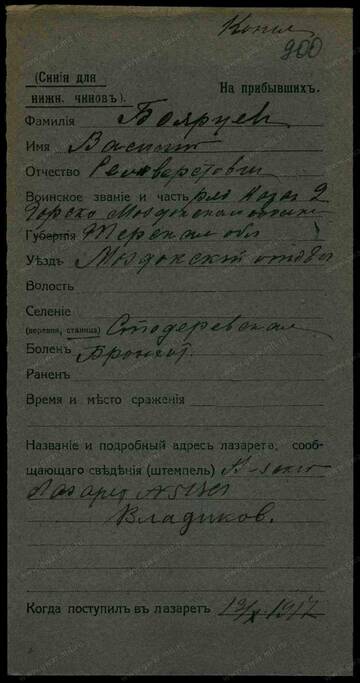 Копия
900
(Синія для
нижн. чиновъ).
На прибывшихъ.
Фамилія Боярцев
Имя Василій
Отчество Селиверстович
Воинское званіе и часть ряд. Казак 2
Горско Моздокскаго
Губернія Терская обл
Уѣздъ Моздокскій отдѣл
Волость
Селеніе
(деревня, станица) Стодеревская
Боленъ Бронхит.
Раненъ
Время и мѣсто сраженія
Названіе и подробный адресъ лазарета, сооб-
щающаго свѣдѣнія (штемпель)
Лазарет
Владиков.
Когда поступилъ въ лазаретъ 19/X 1917